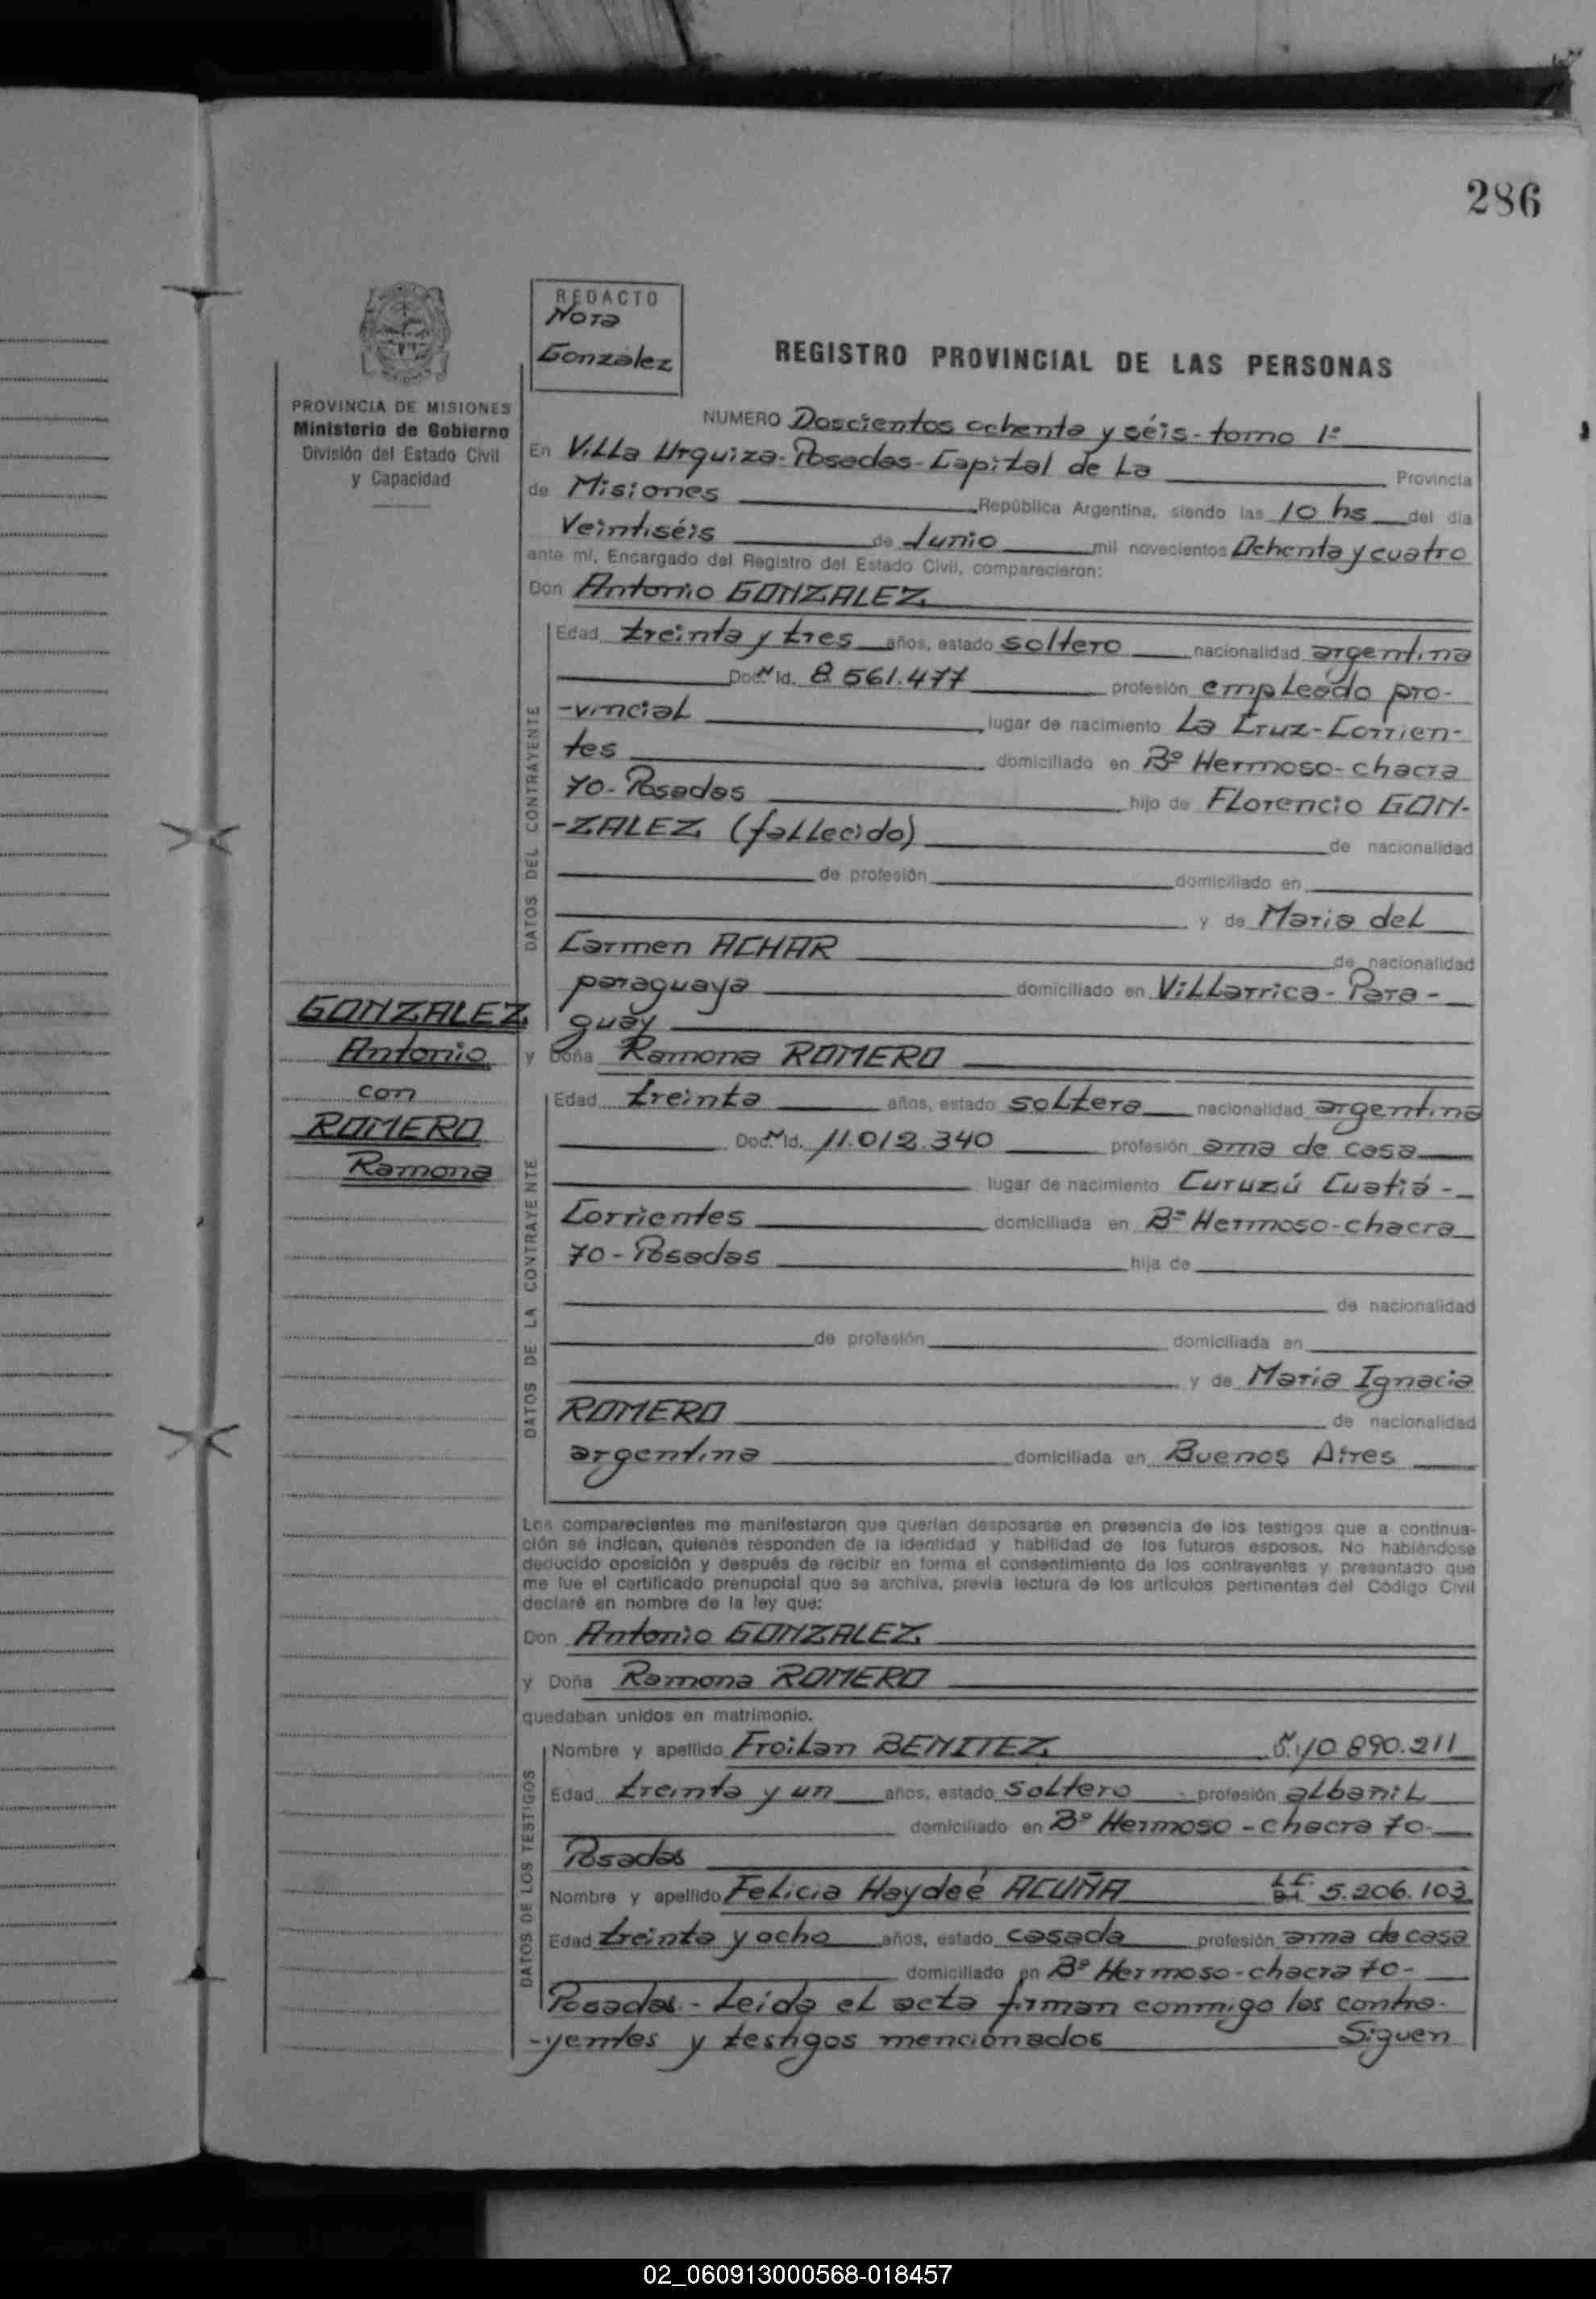 286
REDACTO
Nora
Gonzalez
REGISTRO PROVINCIAL DE LAS PERSONAS
PROVINCIA DE MISIONES
Ministerio de Gobierno
División del Estado Civil
y Capacidad
NUMERO Doscientos ochenta y séis - tomo 1º
En Villa Urquiza - Posadas - Capital de La Provincia
de Misiones República Argentina, siendo las 10 hs del día
Veintiséis de Junio mil novecientos Ochenta y cuatro
ante mí, Encargado del Registro del Estado Civil, comparecieron:
Don Antonio GONZALEZ
DATOS DEL CONTRAYENTE
Edad treinta y tres años, estado soltero nacionalidad argentina
Doc. Id. 8.561.477 profesión empleado pro-
-vincial lugar de nacimiento La Cruz - Corrien-
tes domiciliado en Bº Hermoso - chacra
70 - Posadas hijo de Florencio GON-
-ZALEZ (fallecido) de nacionalidad
de profesión domiciliado en
y de Maria del
Carmen ACHAR de nacionalidad
paraguaya domiciliado en Villarrica - Para-
guay
GONZALEZ
Antonio
con
ROMERO
Ramona
y Doña Ramona ROMERO
DATOS DE LA CONTRAYENTE
Edad treinta años, estado soltera nacionalidad argentina
Doc. Id. 11.012.340 profesión ama de casa
lugar de nacimiento Curuzú Cuatiá -
Corrientes domiciliada en Bº Hermoso - chacra
70 - Posadas hija de
de nacionalidad
de profesión domiciliada en
y de Maria Ignacia
ROMERO de nacionalidad
argentina domiciliada en Buenos Aires
Los comparecientes me manifestaron que querían desposarse en presencia de los testigos que a continua-
ción se indican, quienes responden de la identidad y habilidad de los futuros esposos. No habiéndose
deducido oposición y después de recibir en forma el consentimiento de los contrayentes y presentado que
me fue el certificado prenupcial que se archiva, previa lectura de los artículos pertinentes del Código Civil
declaré en nombre de la ley que:
Don Antonio GONZALEZ
y Doña Ramona ROMERO
quedaban unidos en matrimonio.
DATOS DE LOS TESTIGOS
Nombre y apellido Froilan BENITEZ 10.890.211
Edad treinta y un años, estado soltero profesión albanil
domiciliado en Bº Hermoso - chacra 70 -
Posadas
Nombre y apellido Felicia Haydeé ACUÑA L.C. 5.206.103
Edad treinta y ocho años, estado casada profesión ama de casa
domiciliado en Bº Hermoso - chacra 70 -
Posadas - Leida el acta firman conmigo los contra-
-yentes y testigos mencionados Siguen
02_060913000568-018457